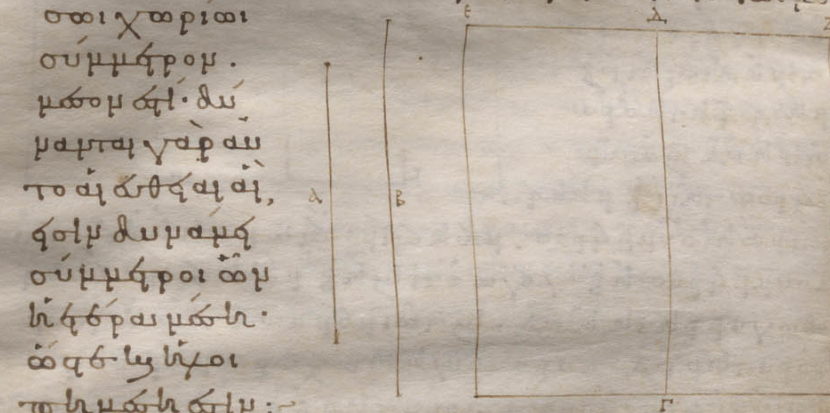 σωι χωρίωι
σύμμετρον.
μέσον ἐστί· δύ
νανται γὰρ αὐ
το αἱ εὐθεῖαι αἵ,
εἰσιν δυνάμει
σύμμετροι ὧν
ἡ ἑτέρα μέση·
ὥστε καὶ ἡ λοι
πὴ μέση ἐστίν:
Ε Δ
Α Β
Γ